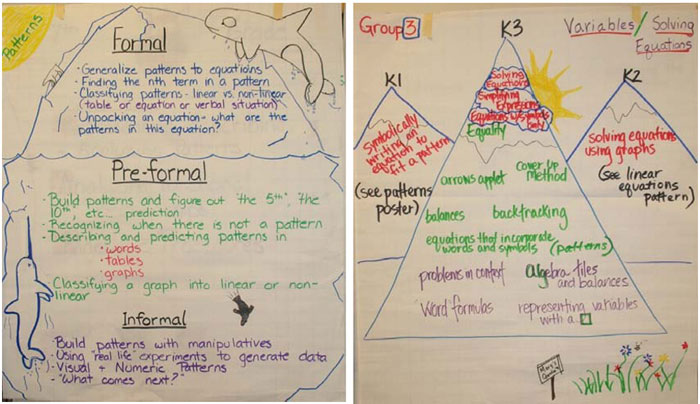 Patterns
Formal
· Generalize patterns to equations
· Finding the nth term in a pattern
· Classifying patterns - linear vs. non-linear
(table or equation or verbal situation)
· Unpacking an equation - what are the
patterns in this equation?
Pre-formal
· Build patterns and figure out "the 5th", the
10th, etc... prediction
· Recognizing when there is not a pattern
· Describing and predicting patterns in
· words
· tables
· graphs
· Classifying a graph into linear or non-
linear
Informal
· Build patterns with manipulatives
· Using "real life" experiments to generate data
· Visual + Numeric Patterns
- "What comes next?"
Group 3
Variables / Solving
Equations
K1
Symbolically
writing an
equation to
fit a pattern
(see patterns
poster)
K3
Solving
Equations
Simplifying
Expressions
Equations w/symbols
only
Equality
arrows applet
cover up
method
balances
backtracking
equations that incorporate
words and symbols
(patterns)
problems in context
algebra tiles
and balances
Word formulas
representing variables
with a
K2
solving equations
using graphs
(see linear
equations
pattern)